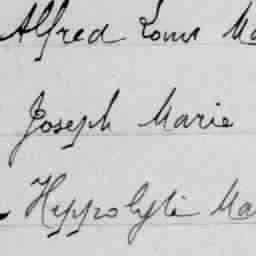 Alfred Louis Ma
Joseph Marie
Hyppolyte Ma